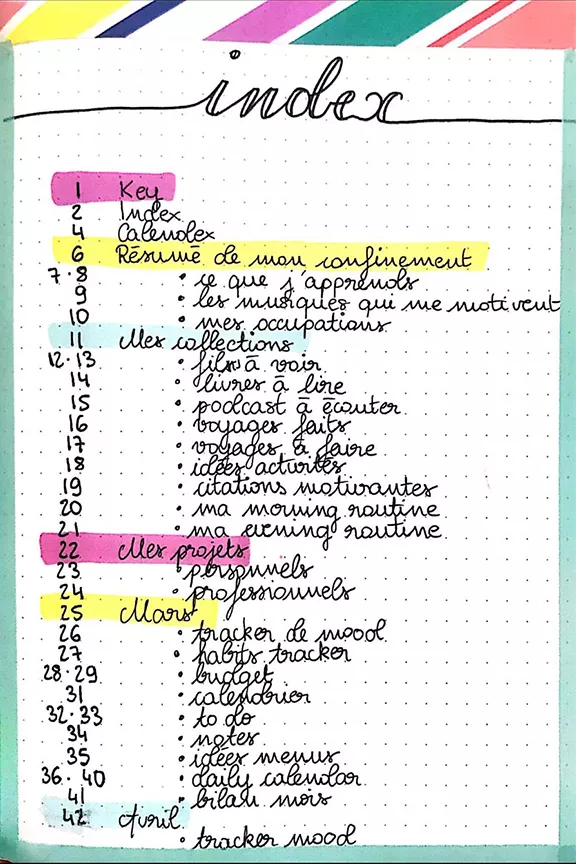 index
1 Key
2 Index
4 Calendex
6 Résumé de mon confinement
7·8 • ce que j'apprends
9 • les musiques qui me motivent
10 • mes occupations
11 Mes collections
12·13 • films à voir
14 • livres à lire
15 • podcast à écouter
16 • voyages faits
17 • voyages à faire
18 • idées activités
19 • citations motivantes
20 • ma morning routine
21 • ma evening routine
22 Mes projets
23 • personnels
24 • professionnels
25 Mars
26 • tracker de mood
27 • habits tracker
28·29 • budget
31 • calendrier
32·33 • to do
34 • notes
35 • idées menus
36·40 • daily calendar
41 • bilan mois
42 Avril
• tracker mood